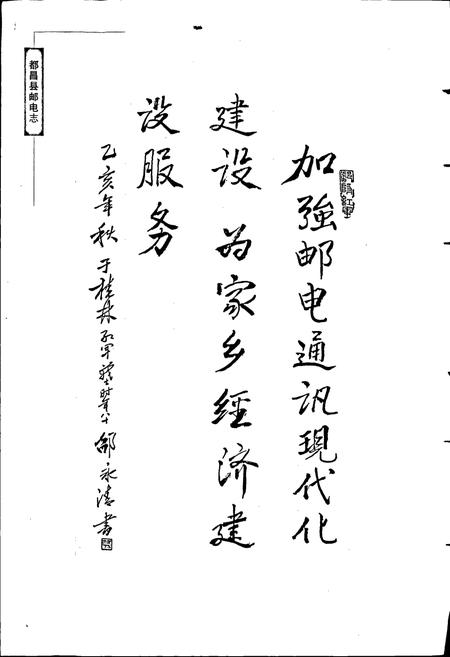 都昌县邮电志
加強邮电通讯現代化
建设 为家乡經济建
设服务
乙亥年秋于桂林 邹永清书